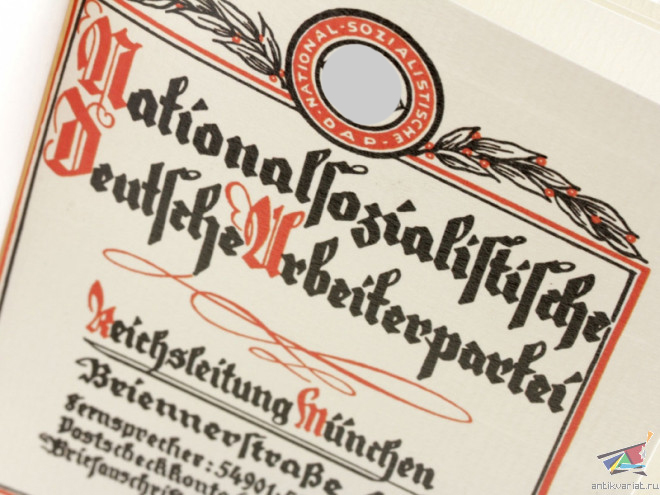 NATIONAL-SOZIALISTISCHE
D.A.P.
Nationalsozialistische
Deutsche Arbeiterpartei
Reichsleitung München
Briennerstraße
Fernsprecher: 54901
Postscheckkonto
Briefanschrif
antikvariat.ru